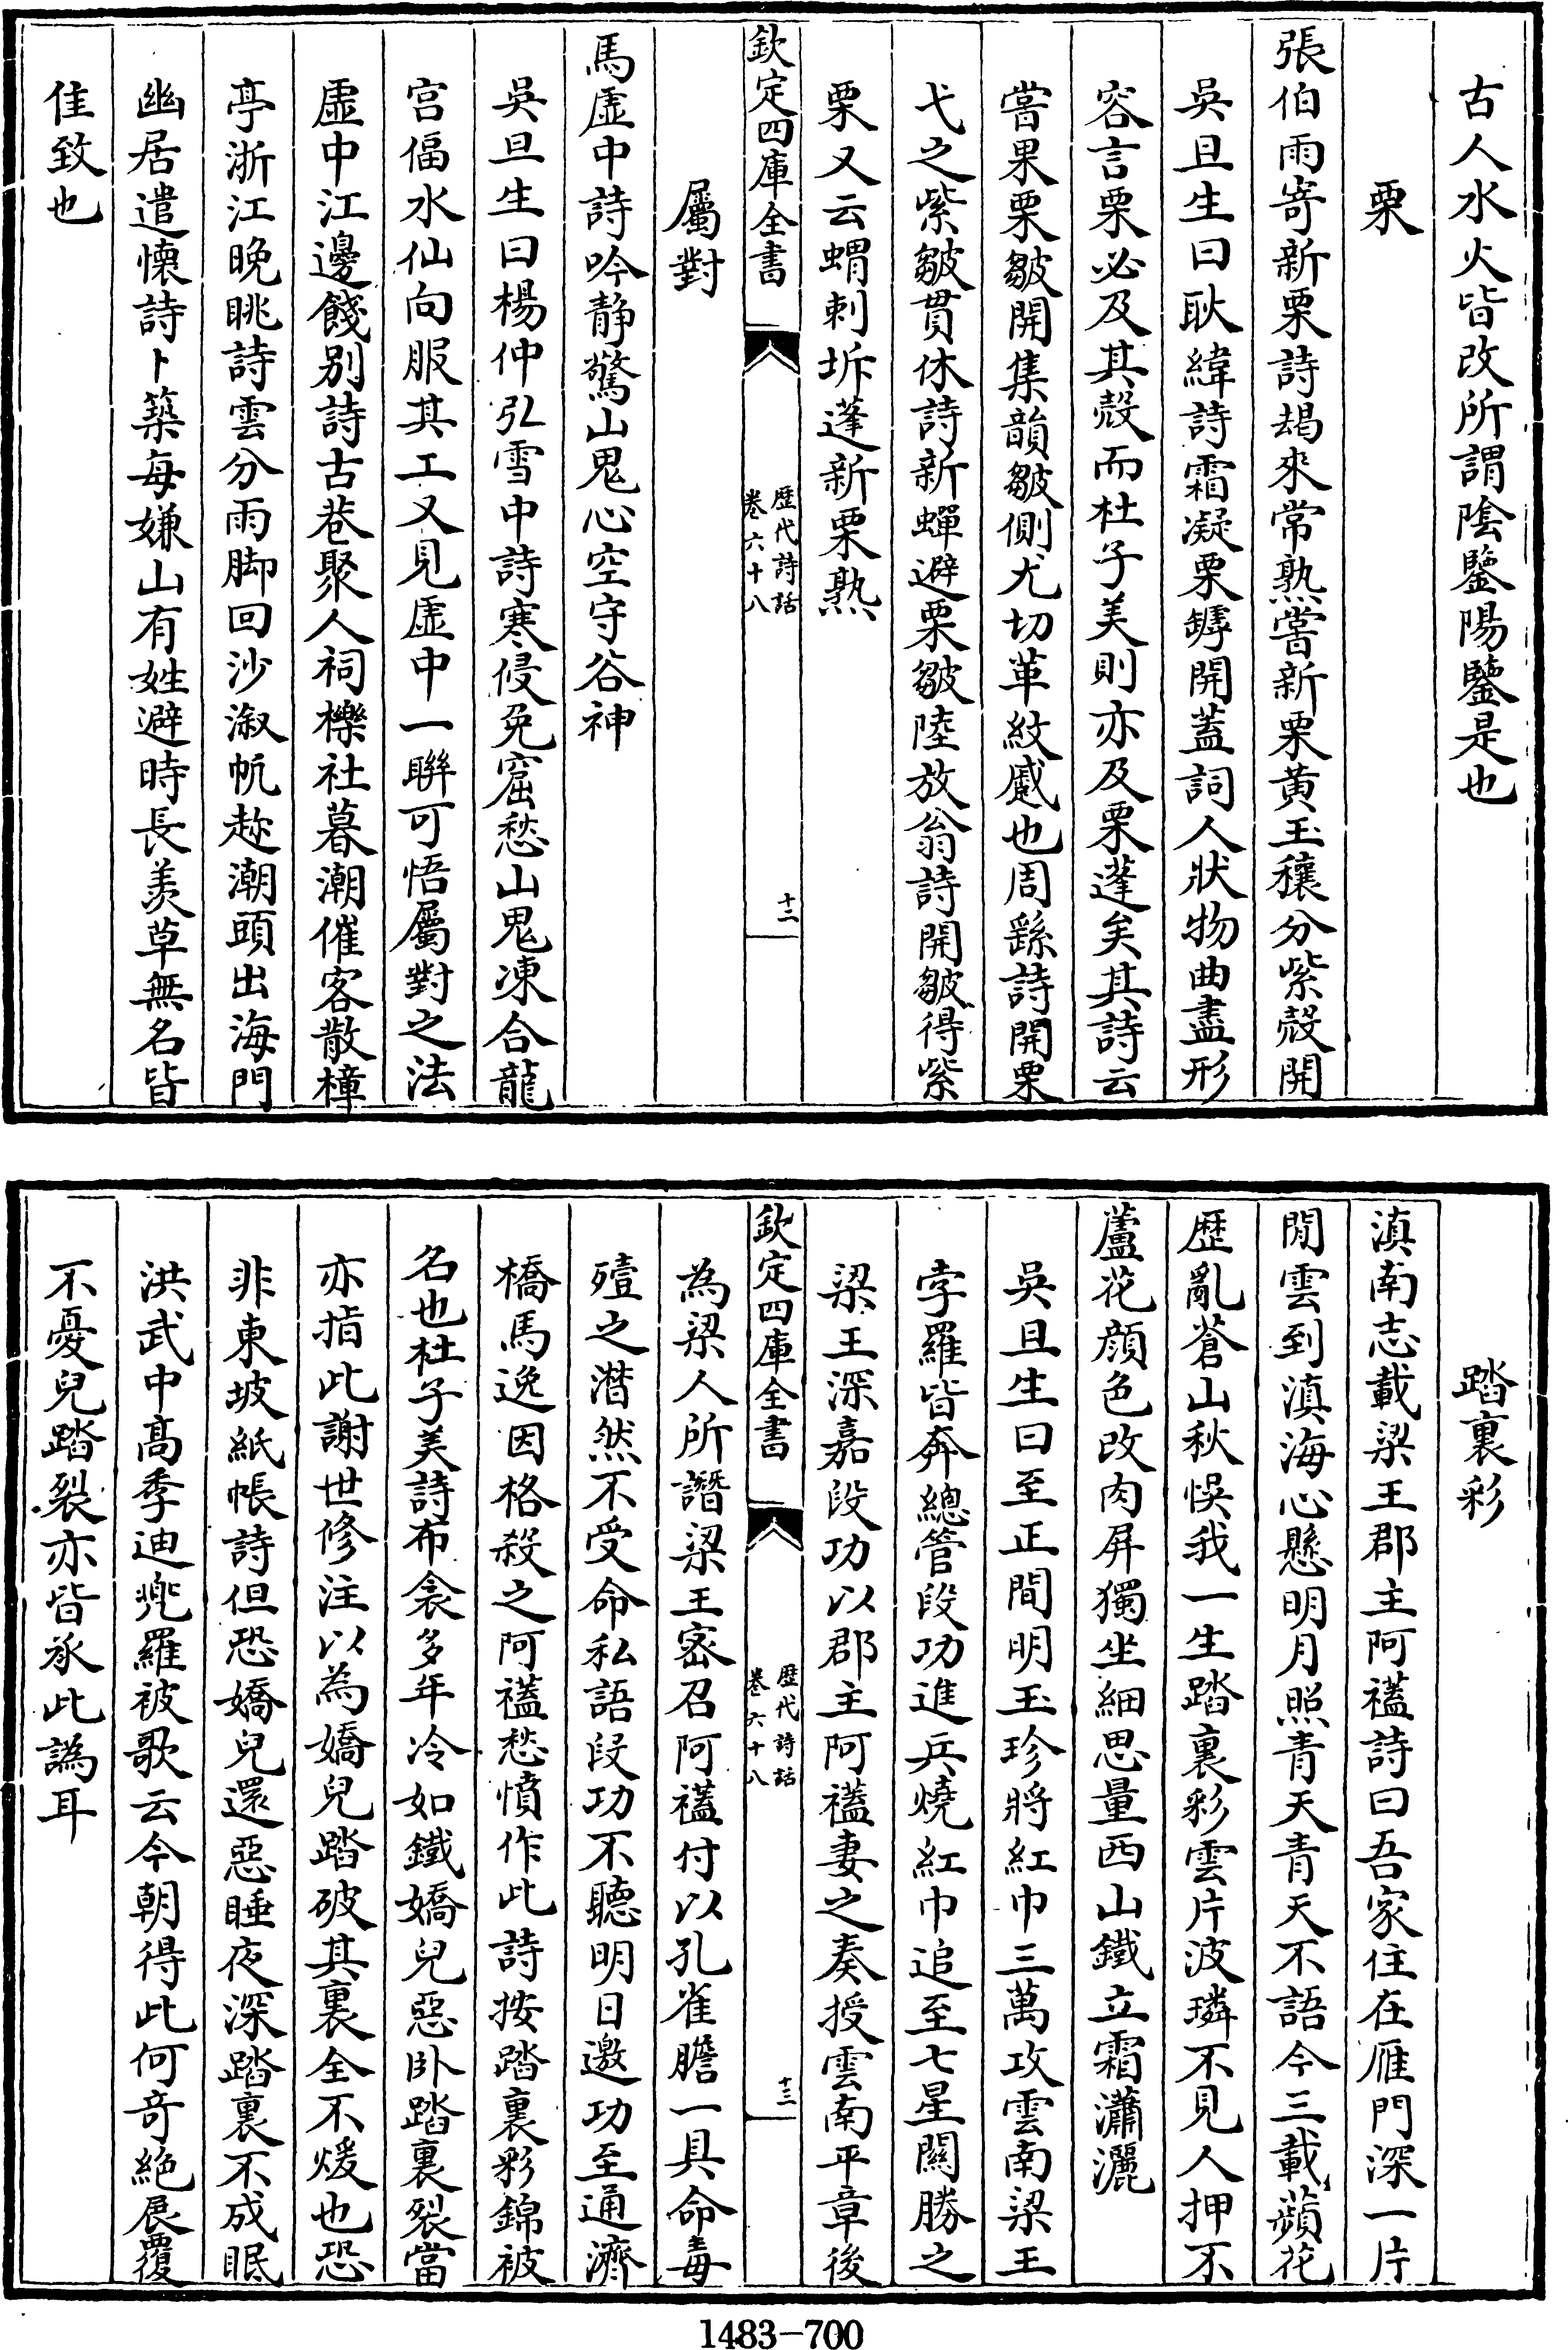 古人水火皆改所謂陰鑒陽鑒是也
栗
張伯雨寄新栗詩朅來常熟嘗新栗黄玉穰分紫殼開
吳旦生曰耿緯詩霜凝栗罅開蓋詞人狀物曲盡形
容言栗必及其殼而杜子美則亦及栗蓬矣其詩云
嘗果栗皺開集韻皺側尤切革紋蹙也周繇詩開栗
弋之紫皺貫休詩新蟬避栗皺陸放翁詩開皺得紫
栗又云蝟刺坼蓬新栗熟
欽定四庫全書
歴代詩話
卷六十八
十二
屬對
馬虛中詩吟静驚山鬼心空守谷神
吳旦生曰楊仲弘雪中詩寒侵兔窟愁山鬼凍合龍
宫偪水仙向服其工又見虛中一聨可悟屬對之法
虛中江邊餞别詩古巷聚人祠櫟社暮潮催客散樟
亭浙江晚眺詩雲分雨脚回沙溆帆趂潮頭出海門
幽居遣懷詩卜築每嫌山有姓避時長羨草無名皆
佳致也
踏裏彩
滇南志載梁王郡主阿䙡詩曰吾家住在雁門深一片
閒雲到滇海心懸明月照青天青天不語今三載蘋花
歴亂蒼山秋悞我一生踏裏彩雲片波璘不見人押不
蘆花顔色改肉屏獨坐細思量西山鐵立霜瀟灑
吳旦生曰至正間明玉珍將紅巾三萬攻雲南梁王
孛羅皆奔總管段功進兵燒紅巾追至七星關勝之
梁王深嘉段功以郡主阿䙡妻之奏授雲南平章後
欽定四庫全書
歴代詩話
卷六十八
十三
為梁人所譖梁王宻召阿䙡付以孔雀膽一具命毒
殪之潸然不受命私語段功不聽明日邀功至通濟
橋馬逸因格殺之阿䙡愁憤作此詩按踏裏彩錦被
名也杜子美詩布衾多年冷如鐵嬌兒惡卧踏裏裂當
亦指此謝世修注以為嬌兒踏破其裏全不煖也恐
非東坡紙帳詩但恐嬌兒還惡睡夜深踏裏不成眠
洪武中髙季迪兠羅被歌云今朝得此何竒絶展覆
不憂兒踏裂亦皆承此譌耳
1483-700